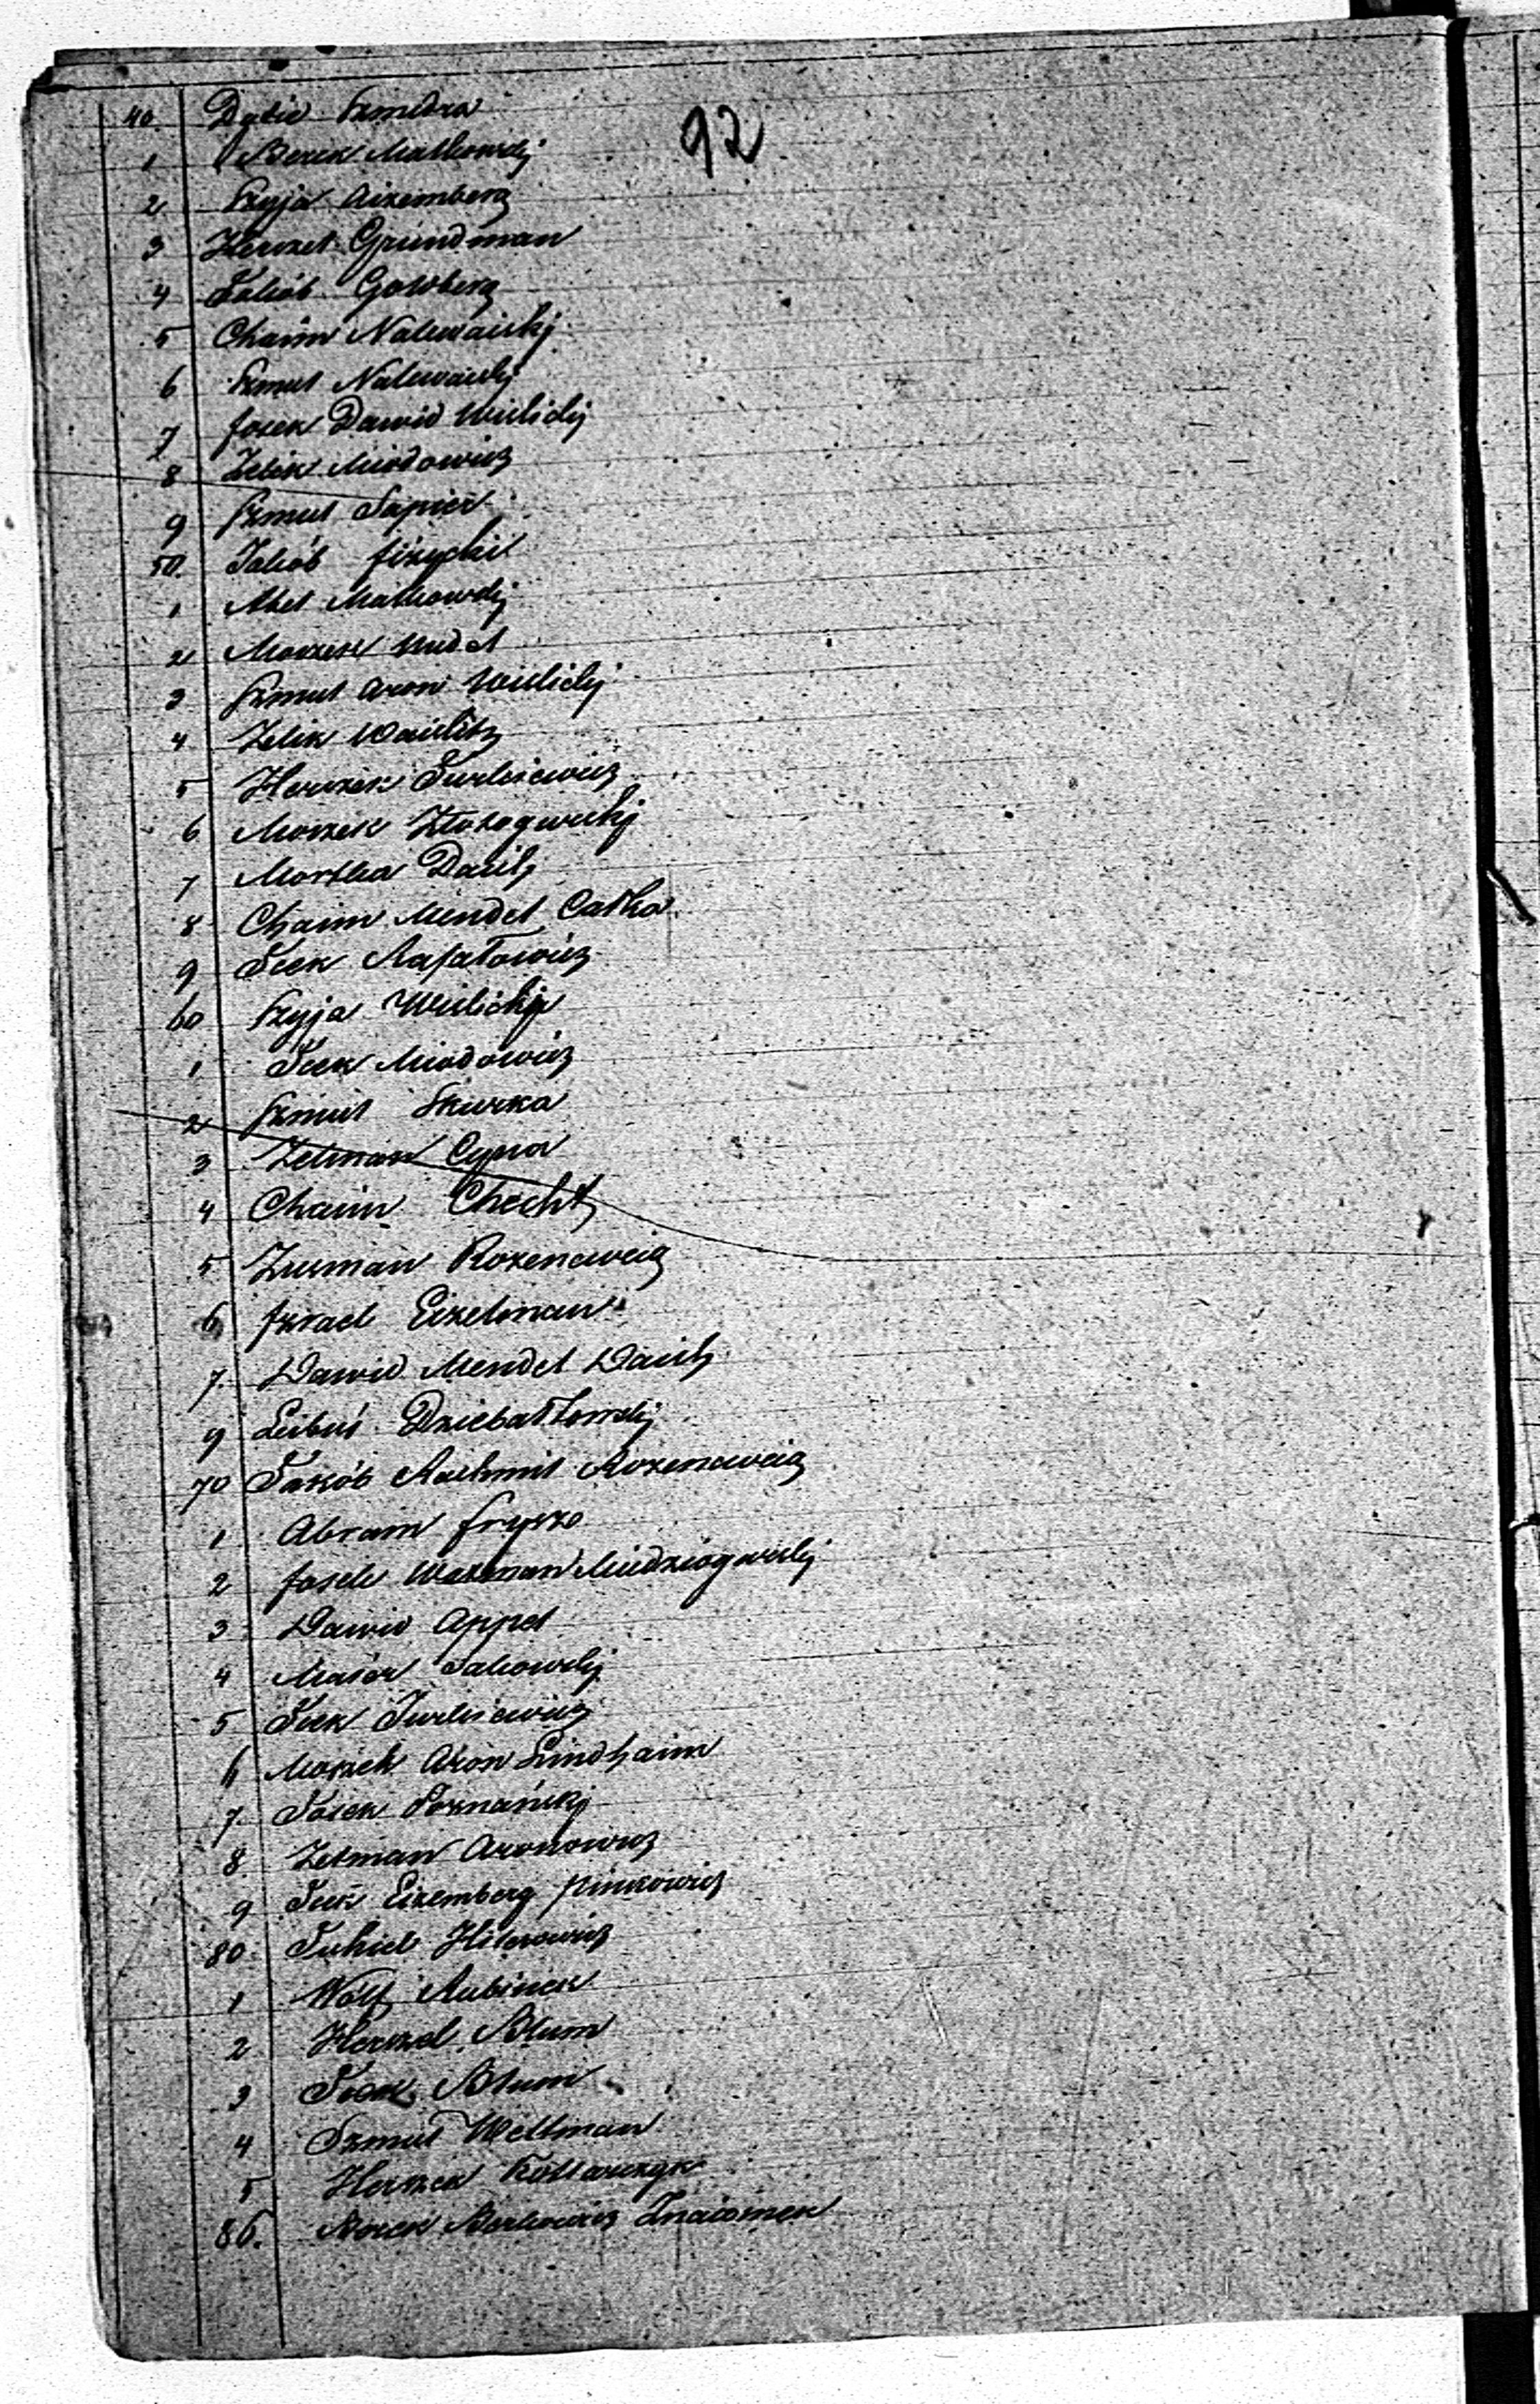 92
40. Dytie Szmedra
1 Berek Malkowskj
2 Szyja Aizemberg
3 Herszel Grundman
4 Jakób Goldberg
5 Chaim Nalewaiskj
6 Szmul Nalewaiskj
7 Josek Dawid Wielickj
8 Zelik Miodowicz
9 Szmul Sapier
50. Jakób
1 Abel Malkowskj
2 Moszek Wudel
3 Szmul Aron Wielickj
4 Zelik
5 Herszek Jurkiewicz
6 Moszek
7 Mortka Daich
8 Chaim Mendel Całka
9 Icek Rafałowicz
60 Szyja Wielickj
1 Icek Miodowicz
2 Szmul Skurka
3 Zelman Cyna
4 Chaim Checht
5 Zurman Rozencweig
6 Izrael Eizelman
7. Dawid Mendel Daich
9 Leibuś Działowskj
70 Jakób Rachmil Rozencweig
1 Abram Frysze
2 Josek Wazeman
3 Dawid Appel
4 Majer Sakowskj
5 Icek Jurkiewicz
6 Moszek Aron Lindhaim
7. Josek Poznańskj
8 Zelman Aronowicz
9 Icek Eizemberg Pinkowicz
80. Juhiel
1 Wolf Rubinek
2 Herszel Blum
3 Icek Blum
4 Szmul Weltman
5 Herszek Kottarczyk
86. Berek Berkowicz Znaiomek